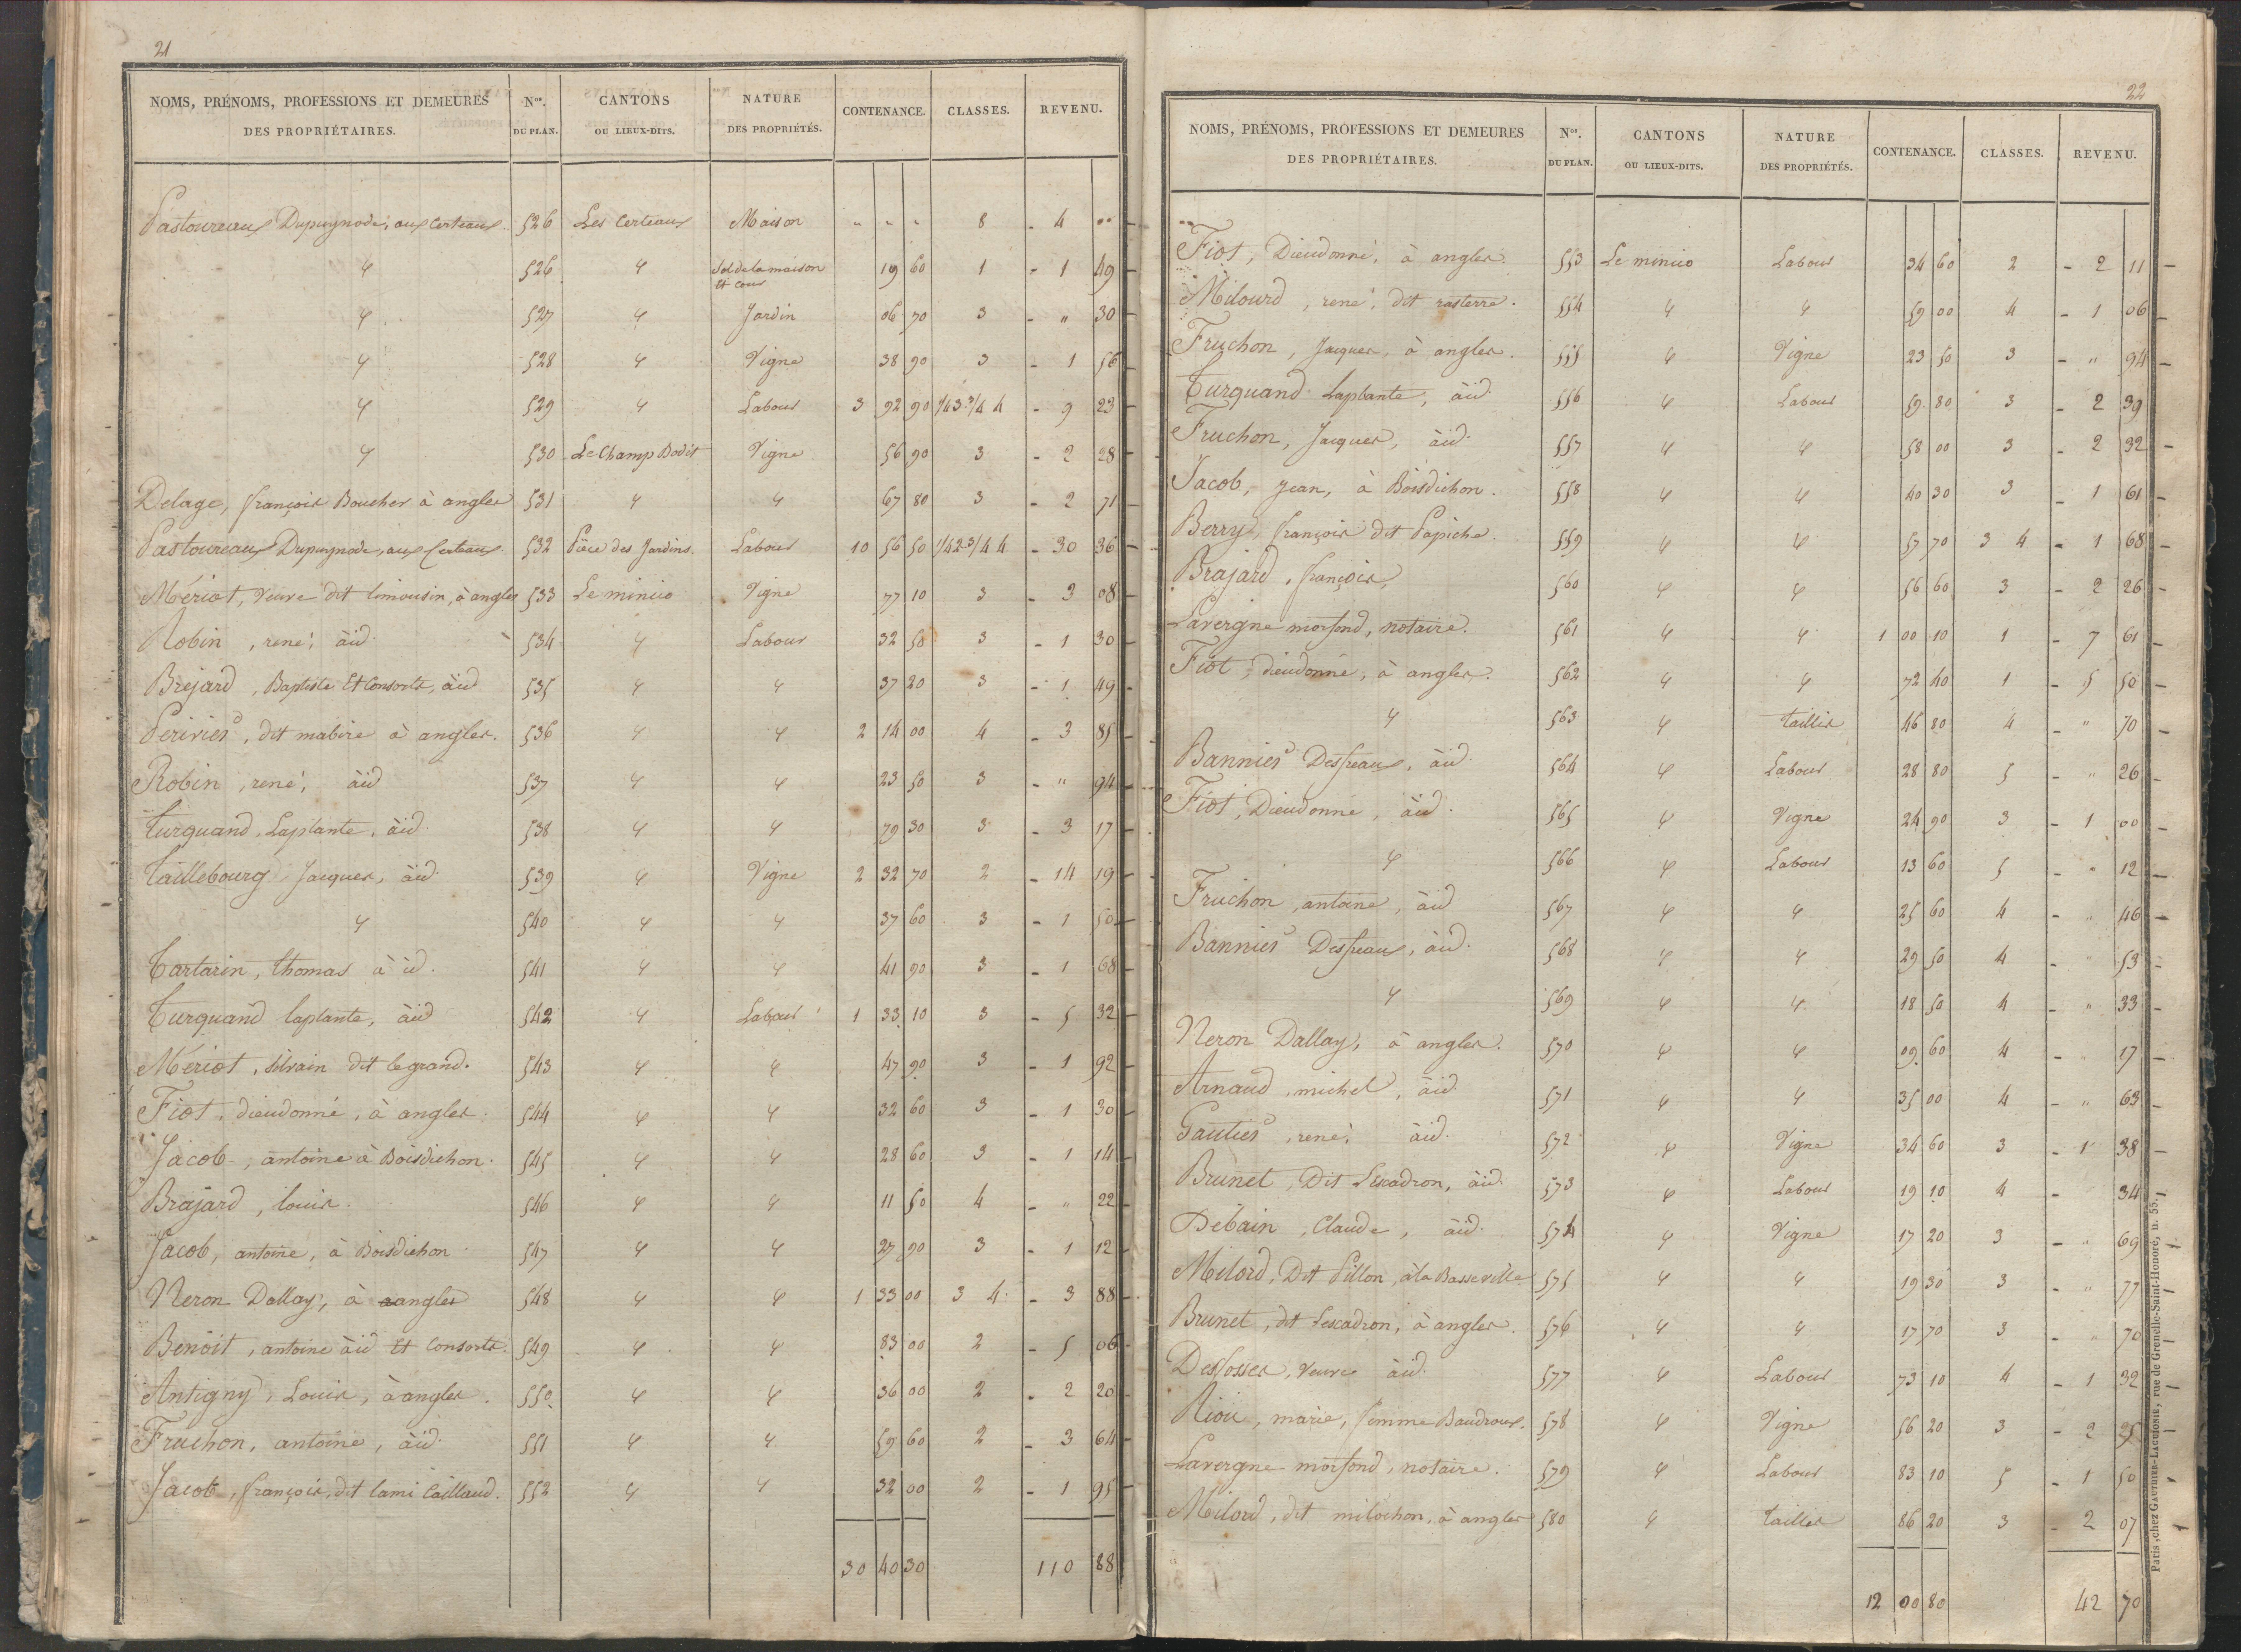 21
NOMS, PRÉNOMS, PROFESSIONS ET DEMEURES DES PROPRIÉTAIRES. Nos. DU PLAN. CANTONS OU LIEUX-DITS. NATURE DES PROPRIÉTÉS. CONTENANCE. CLASSES. REVENU.
Pastoureaux Dupuynode, aux Certeaux. 526 Les Certeaux Maison " " " 8 - 4 "
" 526 " Sol de la maison Et Cour 19 60 1 - 1 49
" 527 " Jardin 06 70 3 - " 30
" 528 " Vigne 38 90 3 - 1 56
" 529 " Labour 3 92 90 1/4 3 3/4 4 - 9 23
" 530 Le Champ Bodit Vigne 56 90 3 - 2 28
Delage, françois Boucher à angles 531 " " 67 80 3 - 2 71
Pastoureaux Dupuynode, aux Certeaux. 532 Pièce des Jardins Labour 10 56 50 1/4 2 3/4 4 - 30 36
Mériot, Veuve dit limousin, à angles 533 Le minio Vigne 77 10 3 - 3 08
Robin, rené, àid. 534 " Labour 32 50 3 - 1 30
Brejard, Baptiste Et Consorts, àid 535 " " 37 20 3 - 1 49
Perivier, dit mabire à angles. 536 " " 2 14 00 4 - 3 85
Robin, rené, àid 537 " " 23 50 3 - " 94
Turquand, Laplante, àid. 538 " " 79 30 3 - 3 17
Taillebourg Jacques, àid. 539 " Vigne 2 32 70 2 - 14 19
" 540 " " 37 60 3 - 1 50
Tartarin, thomas à id. 541 " " 41 90 3 - 1 68
Turquand laplante, àid 542 " Labour 1 33 10 3 - 5 32
Mériot, silvain dit legrand. 543 " " 47 90 3 - 1 92
Fiot, dieudonné, à angles. 544 " " 32 60 3 - 1 30
Jacob, antoine à Boisdichon. 545 " " 28 60 3 - 1 14
Brajard, louis. 546 " " 11 50 4 - " 22
Jacob, antoine, à Boisdichon. 547 " " 27 90 3 - 1 12
Neron Dallay, à angles 548 " " 1 33 00 3 4 - 3 88
Benoit, antoine àid Et Consorts. 549 " " 83 00 2 - 5 06
Antigny, Louis, à angles. 550 " " 36 00 2 - 2 20
Fruchon, antoine, àid. 551 " " 59 60 2 - 3 64
Jacob, françois, dit lami Caillaud. 552 " " 32 00 2 - 1 95
30 40 30 110 88
22
NOMS, PRÉNOMS, PROFESSIONS ET DEMEURES DES PROPRIÉTAIRES. Nos. DU PLAN. CANTONS OU LIEUX-DITS. NATURE DES PROPRIÉTÉS. CONTENANCE. CLASSES. REVENU.
Fiot, Dieudonné, à angles. 553 Le minio Labour 34 60 2 - 2 11
Milourd, rené, dit rasterre. 554 " " 59 00 4 - 1 06
Fruchon, Jacques, à angles. 555 " Vigne 23 50 3 - " 94
Turquand Laplante, àid. 556 " Labour 59 80 3 - 2 39
Fruchon, Jacques, àid. 557 " " 58 00 3 - 2 32
Jacob, Jean, à Boisdichon. 558 " " 40 30 3 - 1 61
Berry, françois dit Papiche. 559 " " 57 70 3 4 - 1 68
Brajard, françois, 560 " " 56 60 3 - 2 26
Lavergne morfond, notaire. 561 " " 1 00 10 1 - 7 61
Fiot, dieudonné, à angles. 562 " " 72 40 1 - 5 50
" 563 " taillis 46 80 4 " 70
Bannier Desfeaux, àid. 564 " Labour 28 80 5 - " 26
Fiot, Dieudonné, àid. 565 " Vigne 24 90 3 - 1 00
" 566 " Labour 13 60 5 - " 12
Fruchon, antoine, àid 567 " " 25 60 4 - " 46
Bannier Desfeaux, àid. 568 " " 29 50 4 - " 53
" 569 " " 18 50 4 - " 33
Neron Dallay, à angles. 570 " " 09 60 4 - " 17
Arnaud, michel, àid 571 " " 35 00 4 - " 63
Gautier, rené, àid. 572 " Vigne 34 60 3 - 1 38
Brunet, Dit Lescadron, àid. 573 " Labour 19 10 4 - " 34
Debain, Claude, àid. 574 " Vigne 17 20 3 - " 69
Milord, Dit Pillon, àla Basseville 575 " " 19 30 3 - " 77
Brunet, dit Lescadron, à angles. 576 " " 17 70 3 - " 70
Desfosses, Veuve àid. 577 " Labour 73 10 4 - 1 32
Riou, marie, femme Baudroux. 578 " Vigne 56 20 3 - 2 25
Lavergne morfond, notaire. 579 " Labour 83 10 5 - 1 50
Milord, dit milochon, à angles 580 " taillis 86 20 3 - 2 07
12 00 80 42 70
Paris, chez GAUTHIER-LAGUIONIE, rue de Grenelle-Saint-Honoré, n. 55.